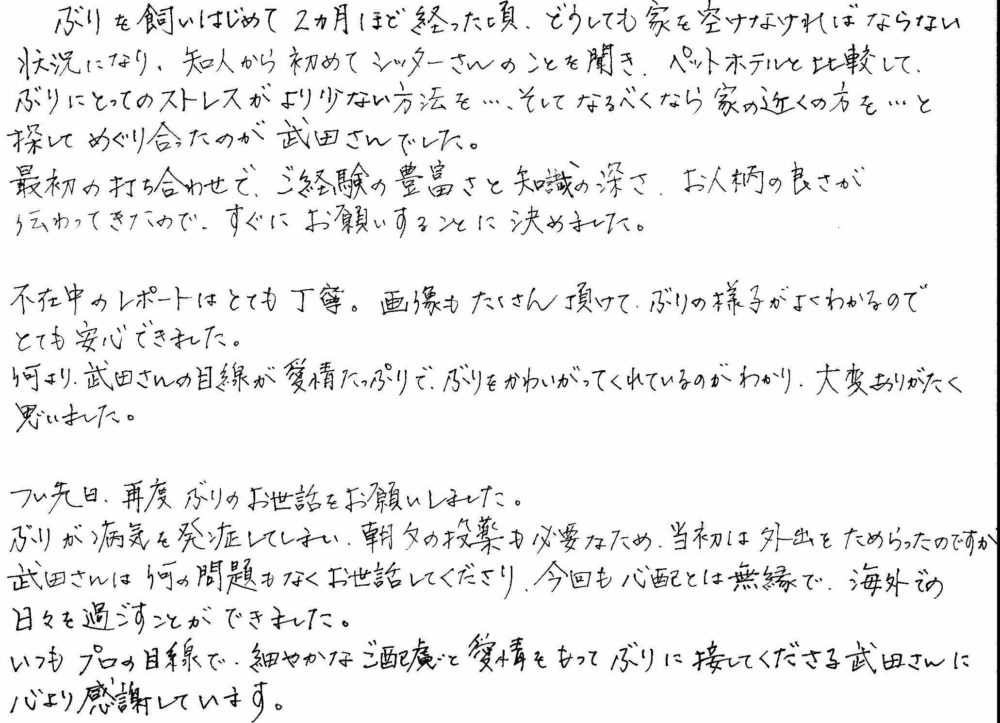 ぶりを飼いはじめて2ヵ月ほど経った頃、どうしても家を空けなければならない
状況になり、知人から初めてシッターさんのことを聞き、ペットホテルと比較して、
ぶりにとってのストレスがより少ない方法を…、そしてなるべくなら家の近くの方を…と
探してめぐり合ったのが武田さんでした。
最初の打ち合わせで、ご経験の豊富さと知識の深さ、お人柄の良さが
伝わってきたので、すぐにお願いすることに決めました。
不在中のレポートはとても丁寧。画像もたくさん頂けて、ぶりの様子がよくわかるので
とても安心できました。
何より、武田さんの目線が愛情たっぷりで、ぶりをかわいがってくれているのがわかり、大変ありがたく
思いました。
つい先日、再度ぶりのお世話をお願いしました。
ぶりが病気を発症してしまい、朝夕の投薬も必要なため、当初は外出をためらったのですが
武田さんは何の問題もなくお世話してくださり、今回も心配とは無縁で、海外での
日々を過ごすことができました。
いつもプロの目線で、細やかなご配慮と愛情をもってぶりに接してくださる武田さんに
心より感謝しています。